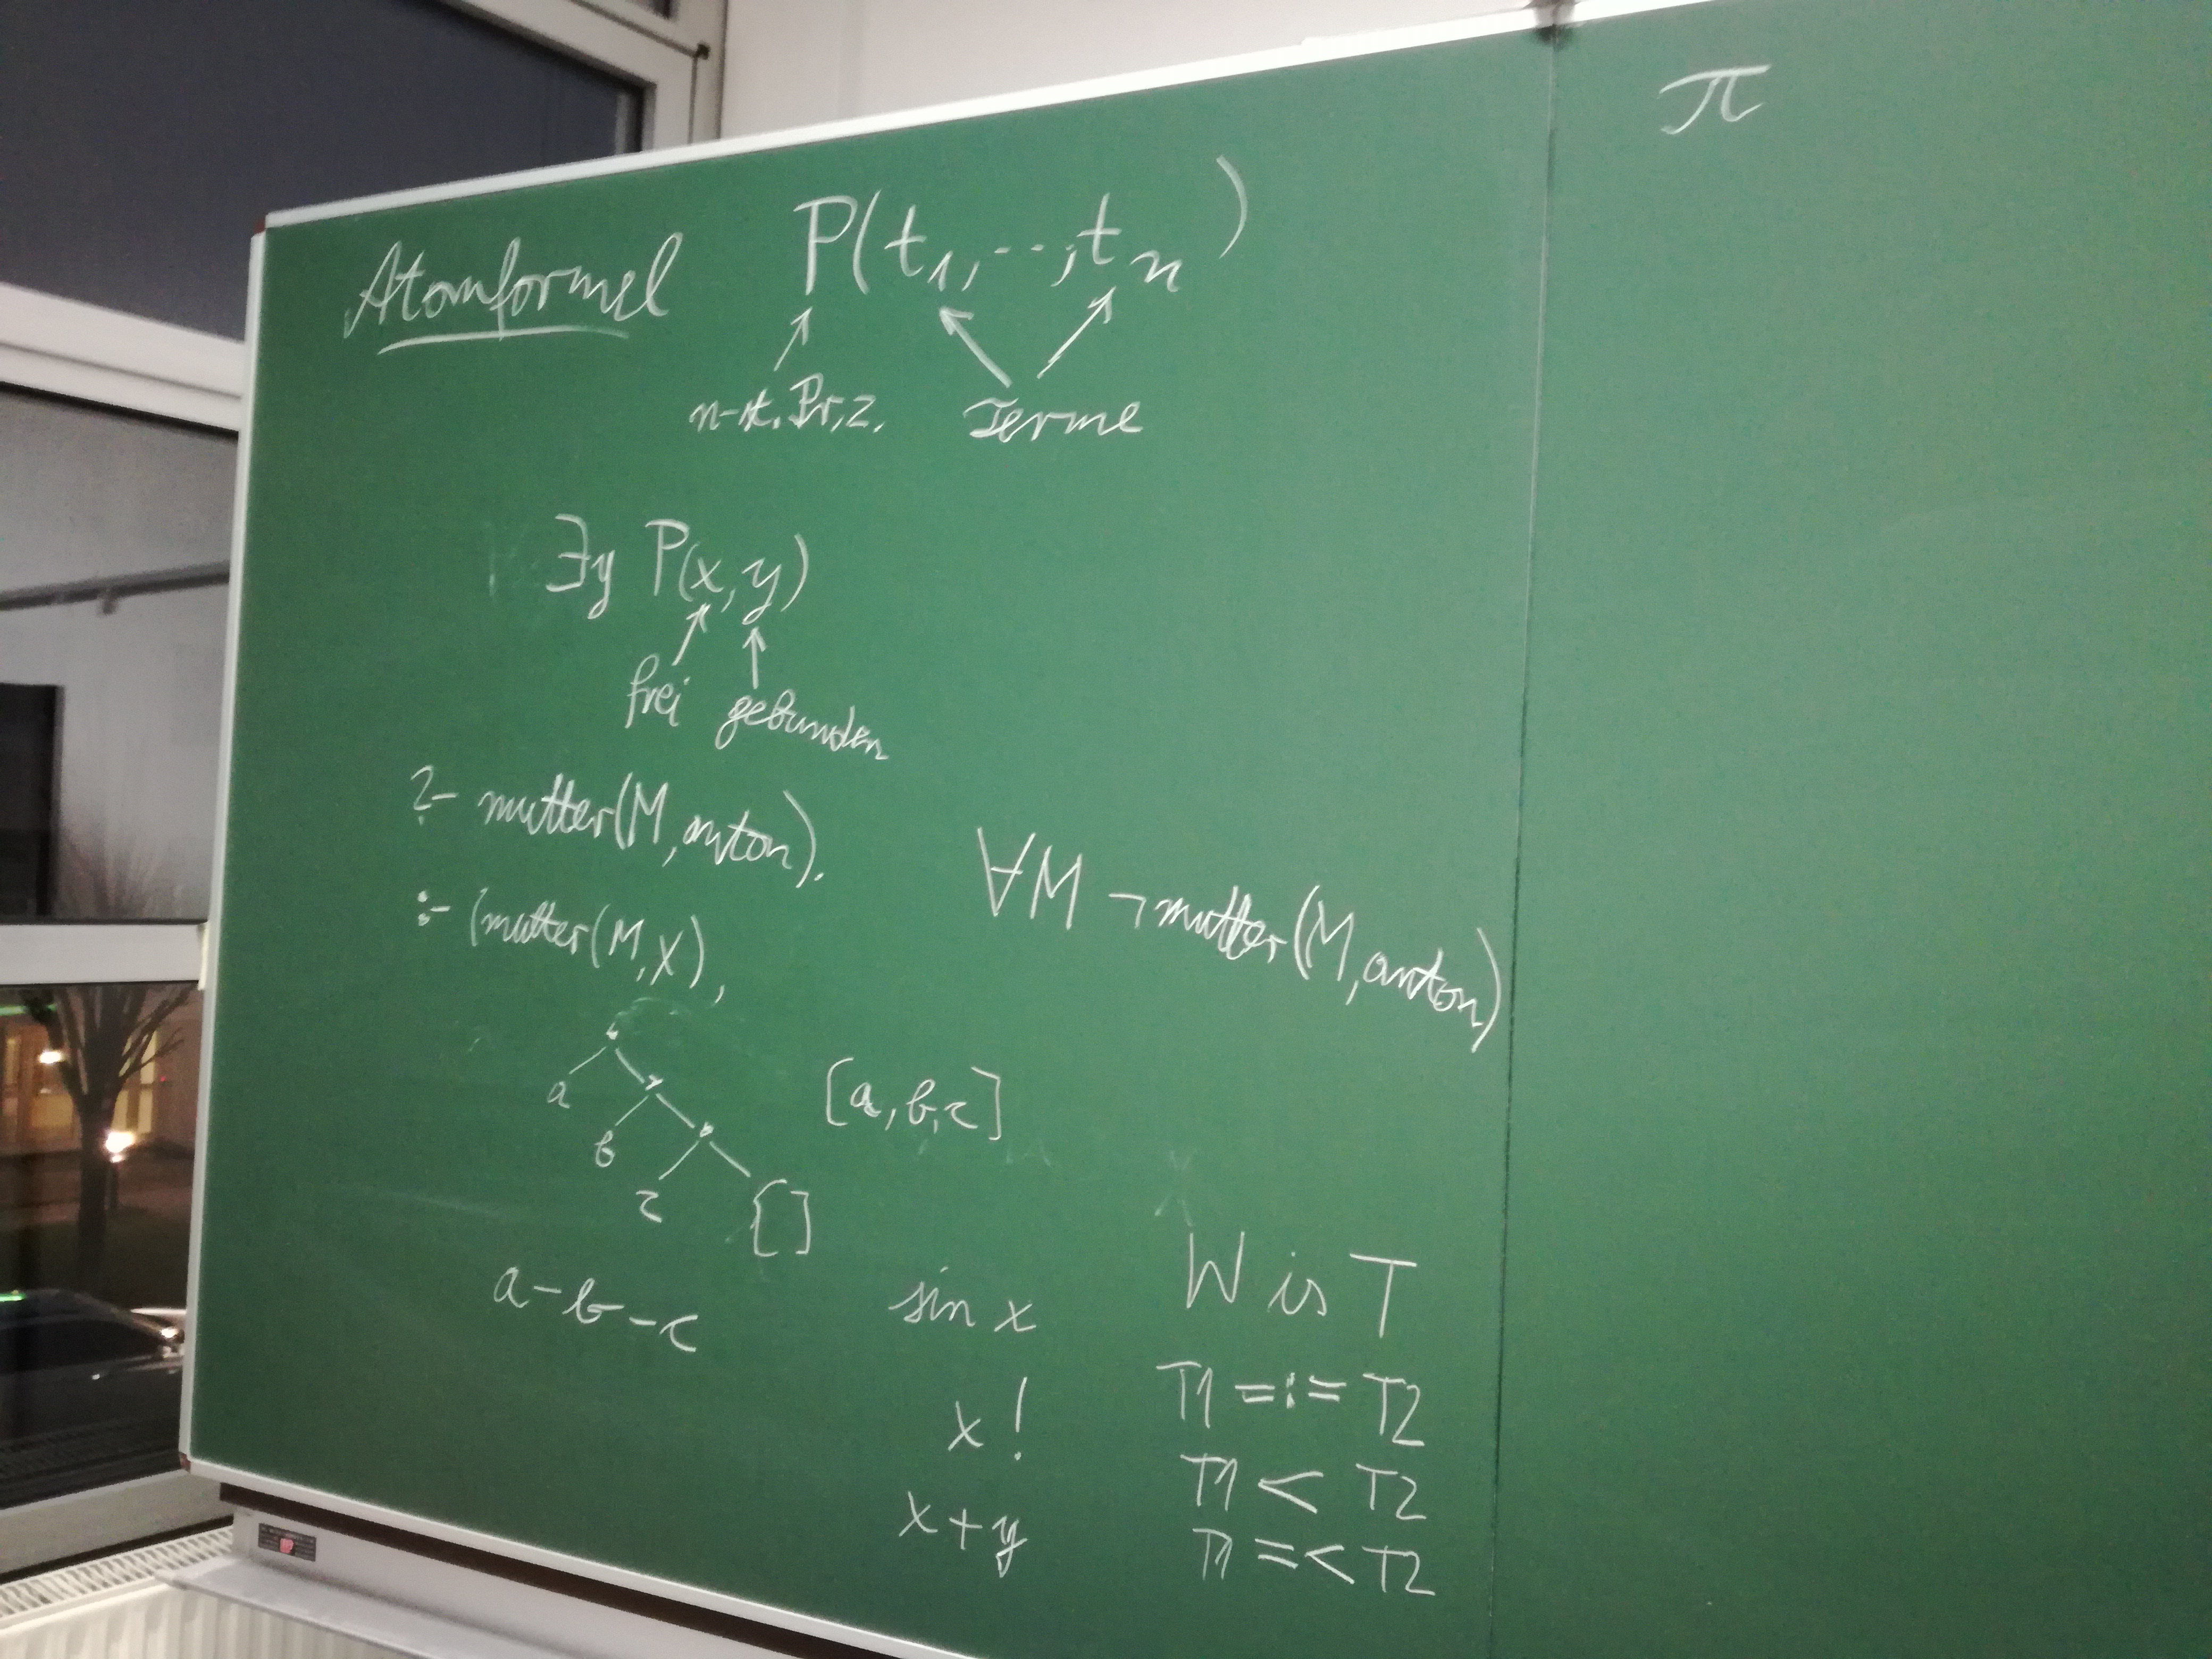 π
Atomformel P(t1,..,tn)
n-st. Pr.z. Terme
∃y P(x,y)
frei gebunden
?- mutter(M,anton).
∀M ¬mutter(M,anton)
:- (mutter(M,X),
a
b
c
[]
[a,b,c]
a-b-c
sin x
x!
x+y
W is T
T1 =:= T2
T1 < T2
T1 =< T2